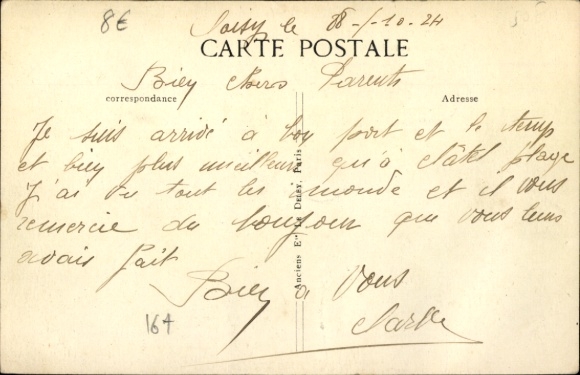 8€
Soisy le 28-10-24
CARTE POSTALE
Bien chers Parents
correspondance
Adresse
Je suis arrivé à bon port et le temp
et bien plus meilleur qu'à Châtel plage
J'ai vu tout le monde et il vous
remercie du bonjour que vous leurs
avais fait
Bien a Vous
Anciens Ets Le Deley, Paris
164